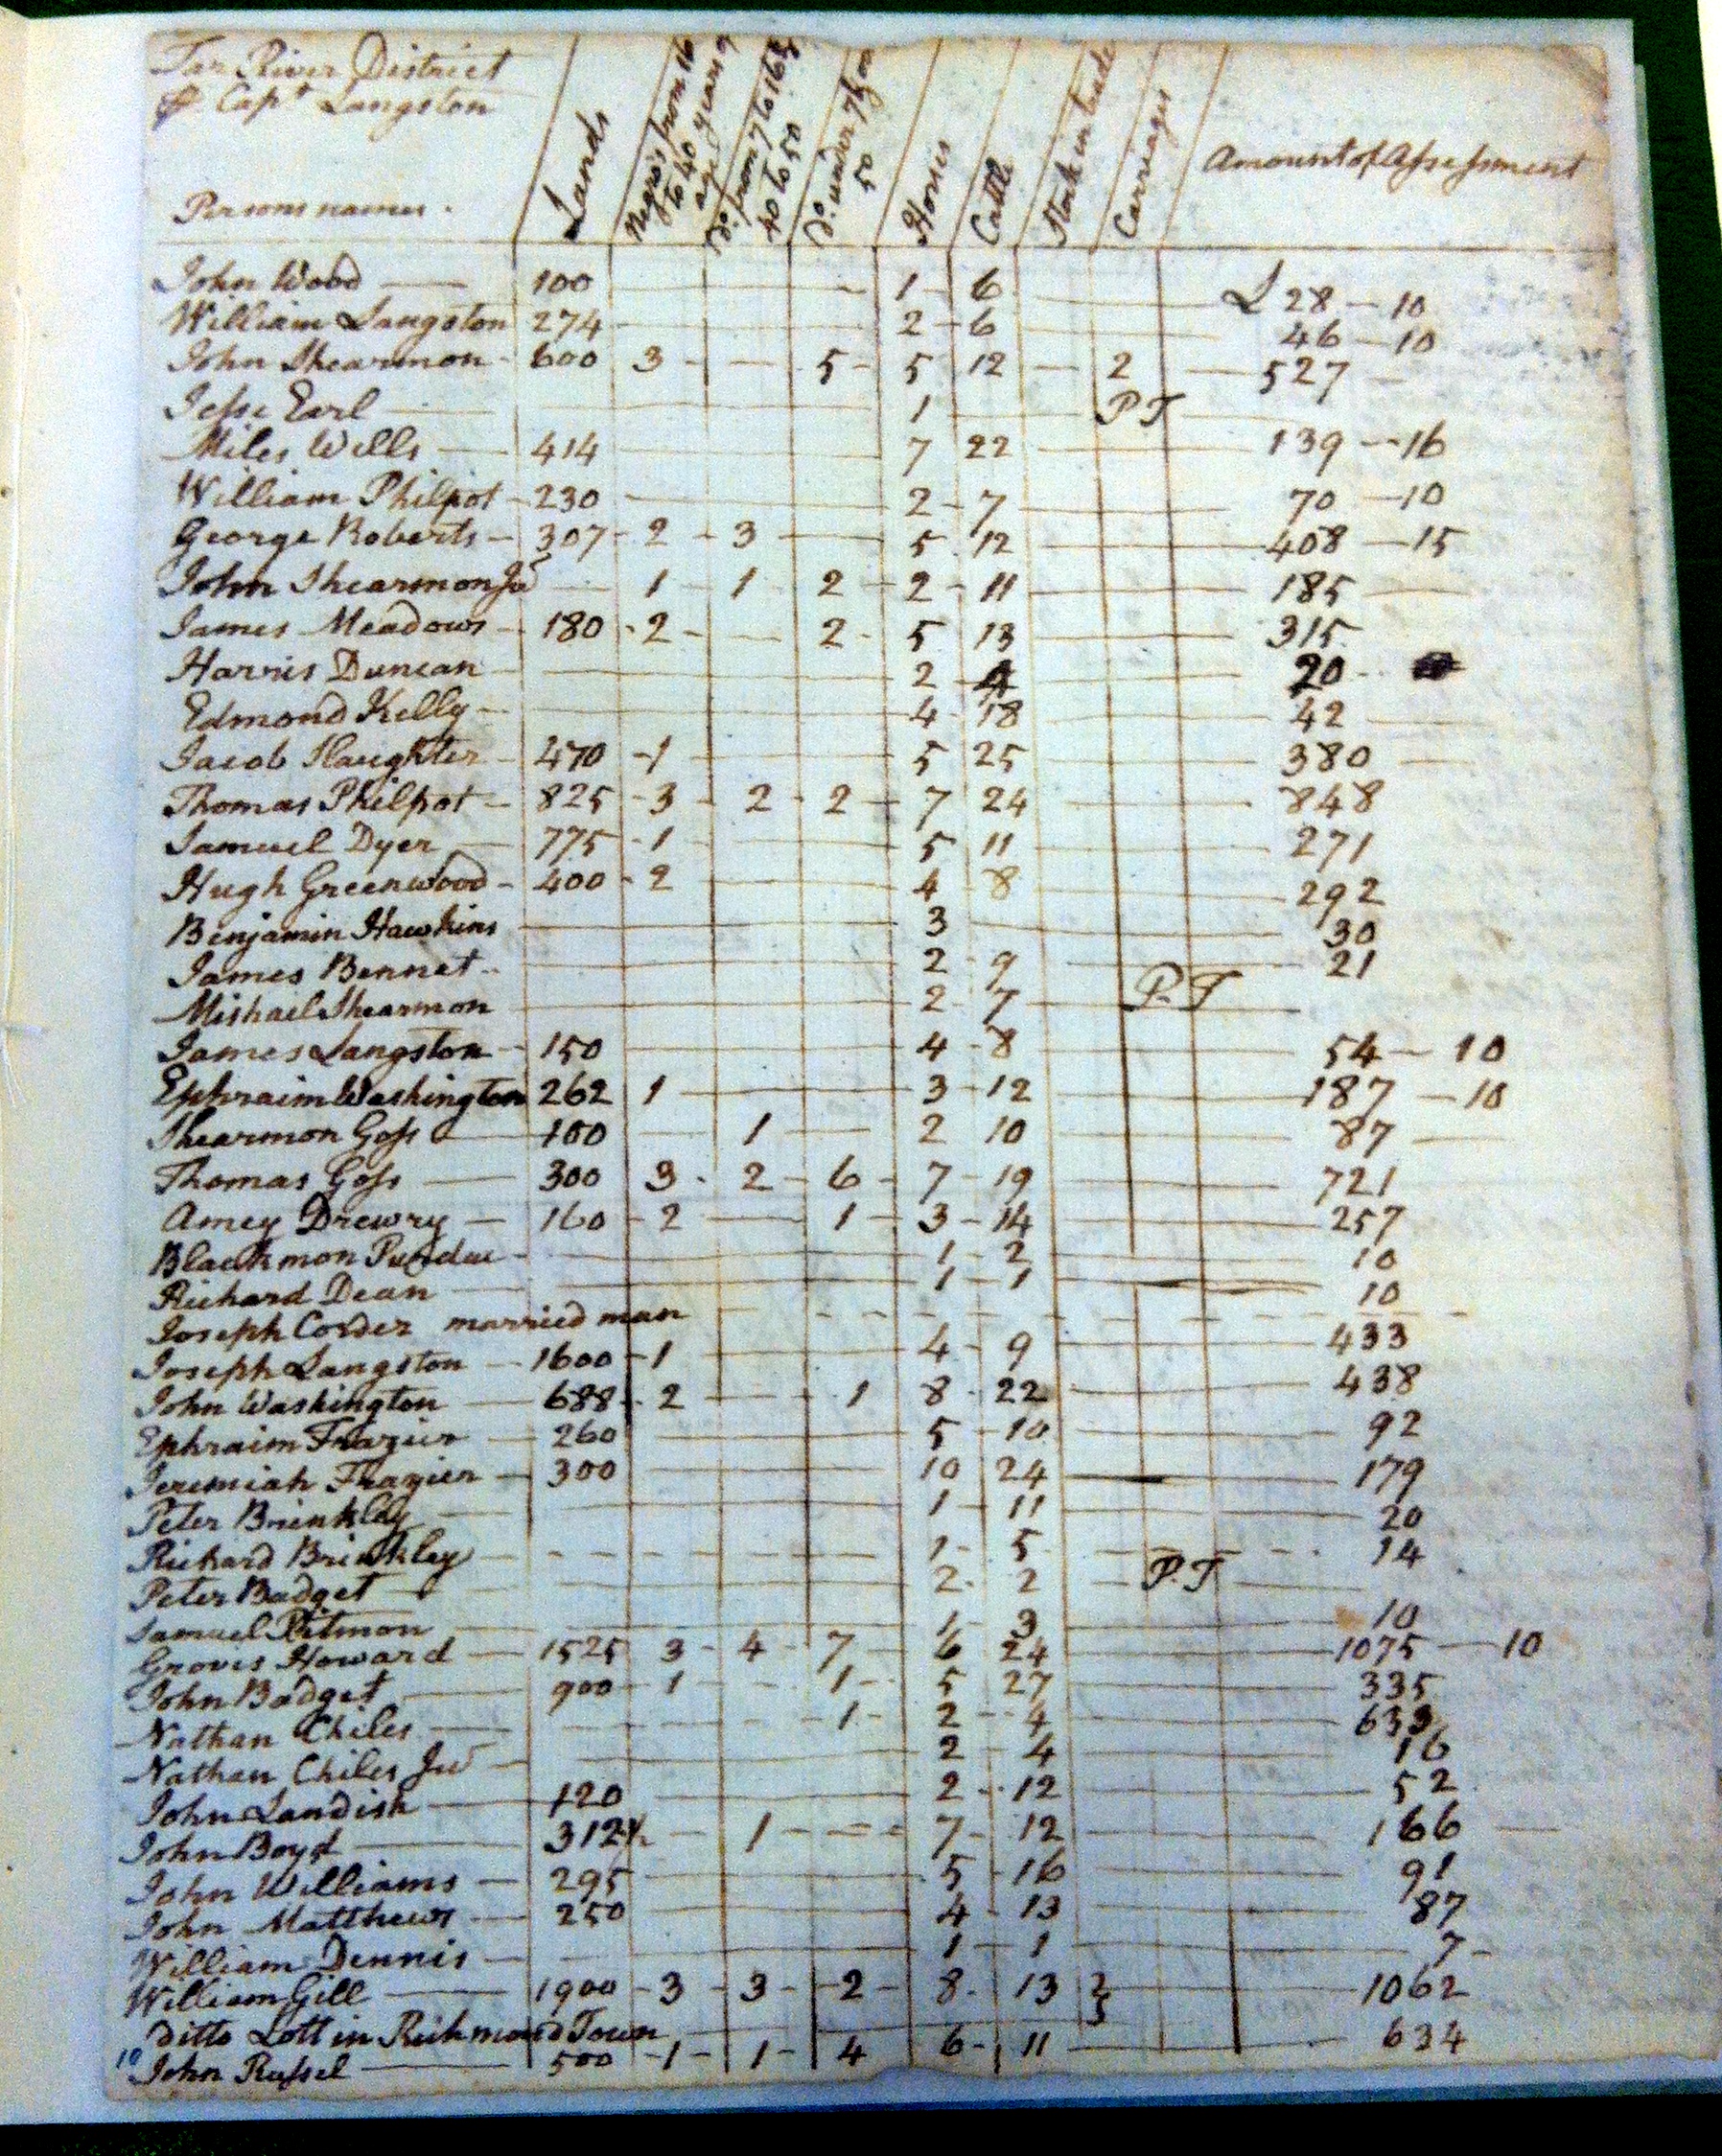 Tar River District
Capt Langston
Persons names.
Lands
Negro's from 16 to 40 years age
Do. from 7 to 16 & 40 to 50
Do. under 7 & 50
Horses
Cattle
Stock in trade
Carriages
Amount of Assessment
John Wood 100 1 6 £ 28 - 10
William Langston 274 2 6 46 - 10
John Shearmon 600 3 5 5 12 2 527
Jesse Earl 1 P T
Miles Wells 414 7 22 139 - 16
William Philpot 230 2 7 70 - 10
George Roberts 307 2 3 5 12 408 - 15
John Shearmon Jur 1 1 2 2 11 185
James Meadows 180 2 2 5 13 315
Harris Duncan 2 4 20
Edmond Kelly 4 18 42
Jacob Slaughter 470 1 5 25 380
Thomas Philpot 825 3 2 2 7 24 848
Samuel Dyer 775 1 5 11 271
Hugh Greenwood 400 2 4 8 292
Benjamin Hawkins 3 30
James Bennet 2 9 21
Mishail Shearmon 2 7 P. T
James Langston 150 4 8 54 - 10
Ephraim Washington 262 1 3 12 187 - 10
Shearmon Goss 100 1 2 10 87
Thomas Goss 300 3 2 6 7 19 721
Amey Drewry 160 2 1 3 14 257
Blackmon Purdue 1 2 10
Richard Dean 1 1 10
Joseph Corder married man
Joseph Langston 1600 1 4 9 433
John Washington 688 2 1 8 22 438
Ephraim Frazier 260 5 10 92
Jeremiah Frazier 300 10 24 179
Peter Brinkley 1 11 20
Richard Brinkley 1 5 14
Peter Badget 2 2 P. T
Samuel Pitmon 1 3 10
Groves Howard 1525 3 4 7 6 24 1075 - 10
John Badget 900 1 1 5 27 335
Nathan Chiles 1 2 4
Nathan Chiles Jur 2 4 16
John Landish 120 2 12 52
John Boyd 312½ 1 7 12 166
John Williams 295 5 16 91
John Matthews 250 4 13 87
William Dennis 1 1 7
William Gill 1900 3 3 2 8 13 } 1062
ditto Lott in Richmond Town
10 John Russel 500 1 1 4 6 11 634